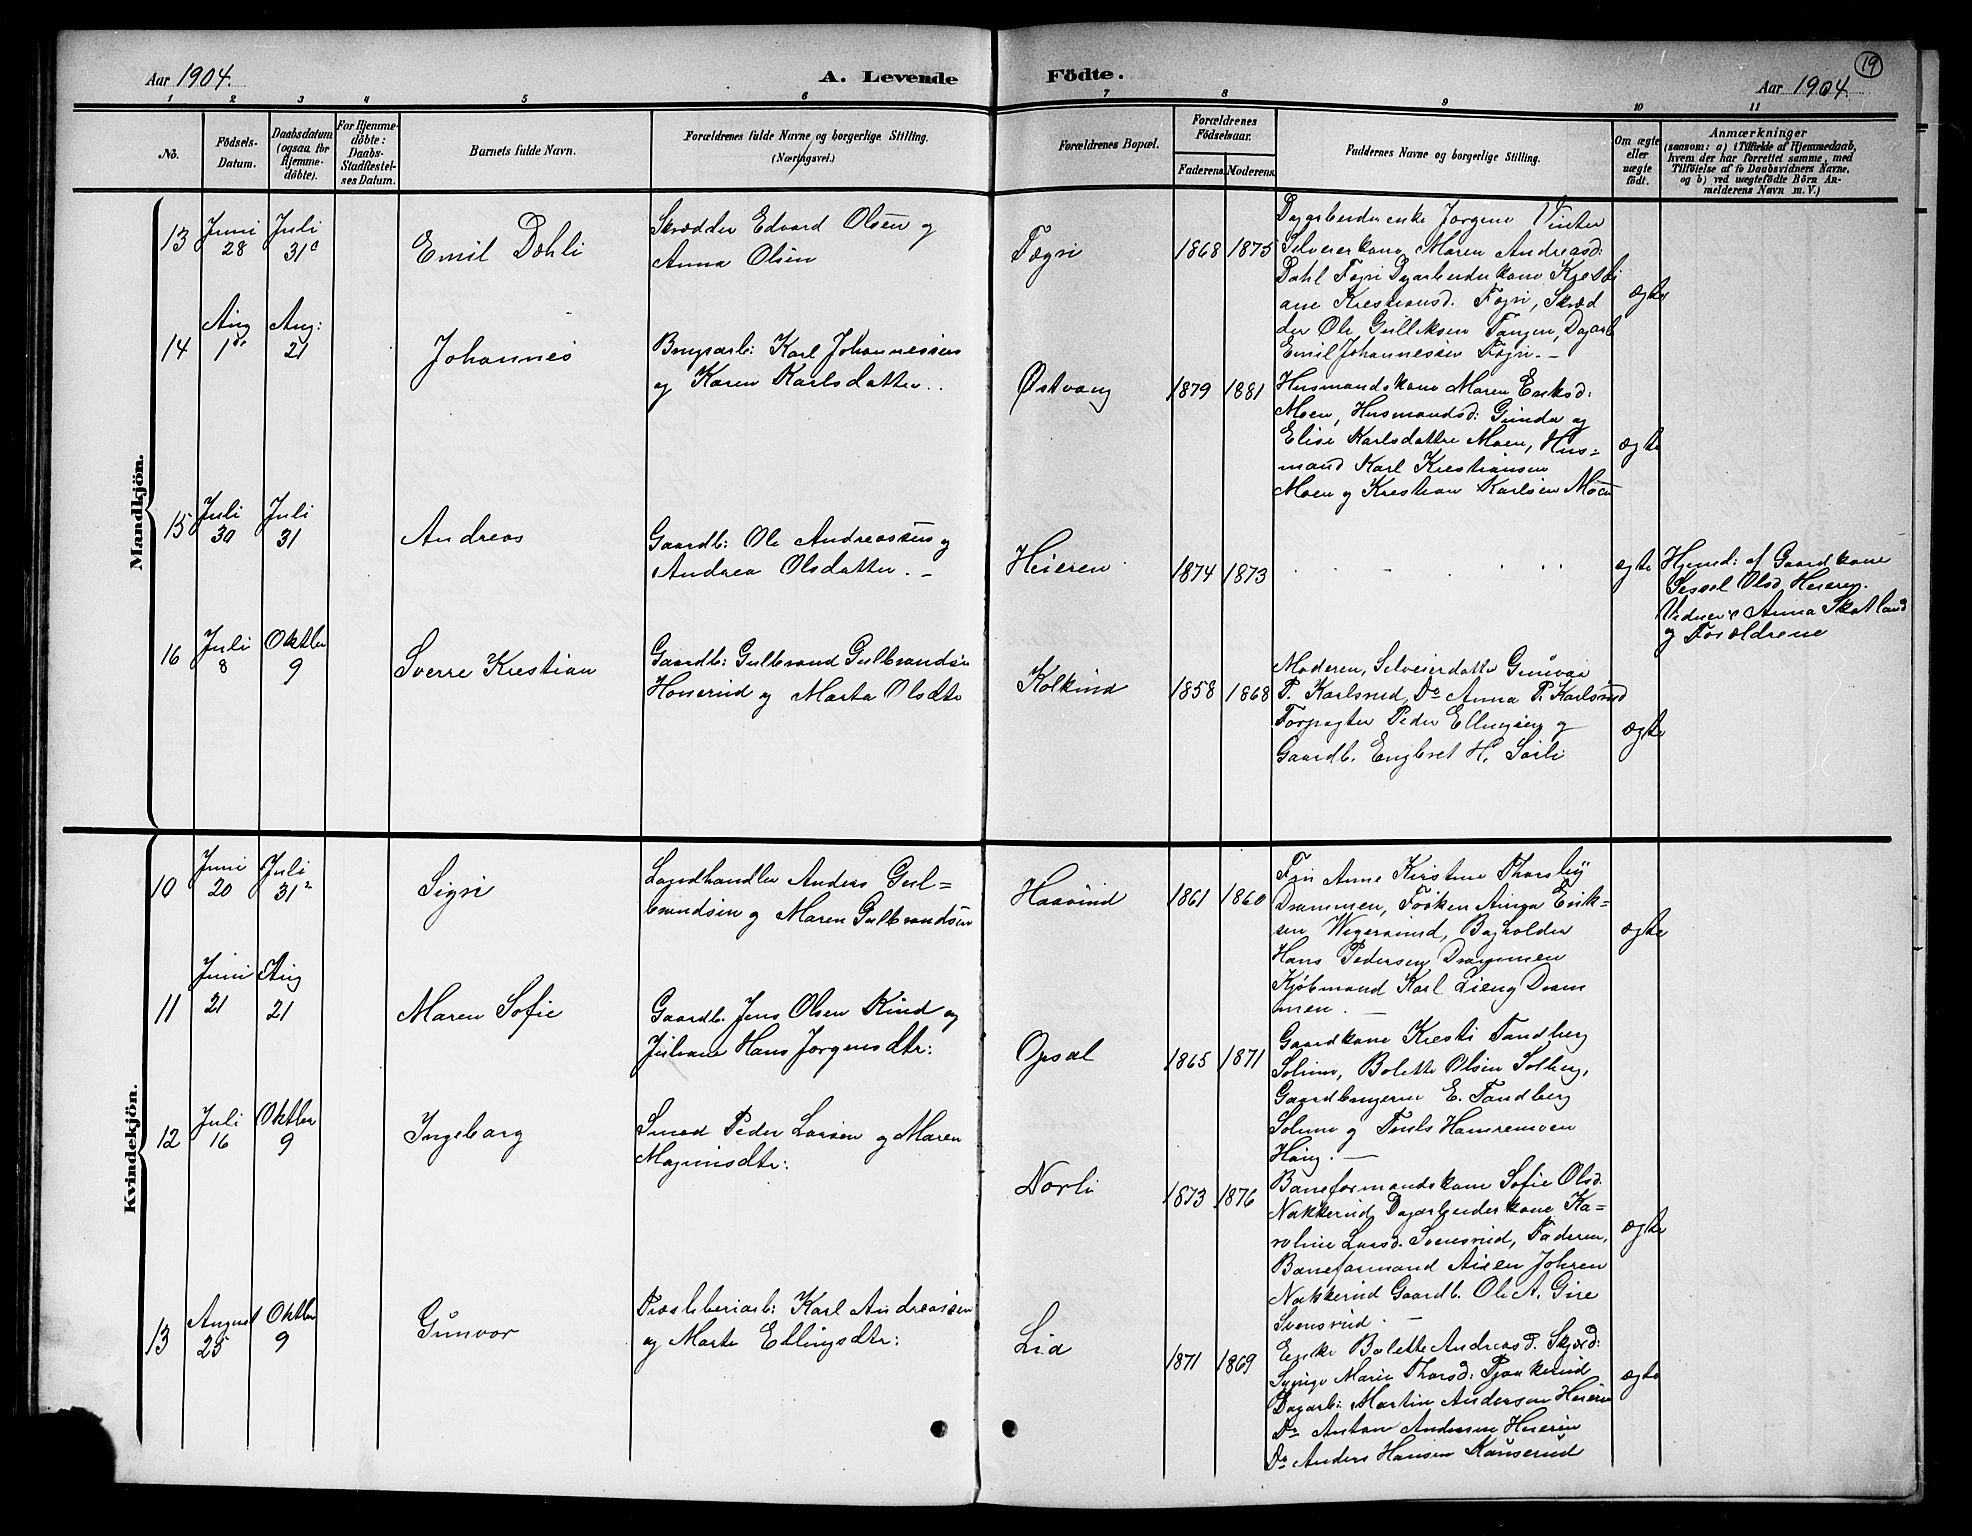 Aar 1904.
A. Levende
Födte.
19
Aar 1904.
1 2 3 4 5 6 7 8 9 10 11
No.
Födsels-
Datum.
Daabsdatum
(ogsaa for
Hjemme-
döbte).
For Hjemme-
döbte:
Daabs-
Stadfæstel-
ses Datum.
Barnets fulde Navn.
Forældrenes fulde Navne og borgerlige Stilling.
(Næringsvei.)
Forældrenes Bopæl.
Forældrenes
Födselsaar.
Faderens.
Moderens.
Faddernes Navne og borgerlige Stilling.
Om ægte
eller
uægte
födt.
Anmærkninger
(saasom: a) i Tilfælde af Hjemmedaab,
hvem der har forrettet samme, med
Tilföielse af to Daabsvidners Navne.
og b) ved uægtefödte Börn An-
melderens Navn m. V.)
Mandkjön.
13
Juni
28
Juli
31
Emil Dæhli
Skrædder Edvard Olsen og
Anna Olsen
Fegri
1868
1875
Dagarbeiderenke Jørgine Vinter
Selveierkone Maren Andreasd:
Dahl Fegri Dagarbeiderkone Kresti
ane Krestiansd. Fegri, Skræd
der Ole Gulliksen Tangen, Dagarb
Emil Johannessen Fegri. —
ægte
14
Aug
1
Aug:
21
Johannes
Brugsarb: Karl Johannessen
og Karen Karlsdatter.
Østvang
1879
1881
Husmandskone Maren Eriksd:
Moen, Husmandsd: Gunda og
Elise Karlsdattre Moen, Hus=
mand Karl Krestiansen
Moen og Krestian Karlsen Moen
ægte
15
Juli
30
Juli
31
Andreas
Gaardb: Ole Andreassen og
Andrea Olsdatter. —
Heieren
1874
1873
ægte
Hjemmed: af Gaardkone
Sessel Olsd Heieren.
Vidner: Anna Skotland
og Forældrene
16
Juli
8
Oktbr
9
Sverre Krestian
Gaardb: Gulbrand Gulbrandsen
Honerud og Marta Olsdtr
Kolkind
1858
1868
Moderen, Selveierdatter Gunvor
P. Karlsrud, Do Anna P. Karlsrud
Forpagter Peder Ellingsen og
Gaardb. Engbret H. Sørli
ægte
Kvindekjön.
10
Juni
20
Juli
31
Sigri
Landhandler Anders Gul=
brandsen og Maren Gulbrandsen
Haavind
1861
1860
Fru Anne Kirstine Thorsby
Drammen, Frøken Eriks=
sen Bogholder
Hans Pedersen Drammen
Kjøbmand Karl Lieng Dram
men. —
ægte
11
Juni
21
Aug
21
Maren Sofie
Gaardb. Jens Olsen Kind og
Juliane Hans Jørgensdtr:
Opsal
1865
1871
Gaardkone Kresti Tandberg
Solum, Bolette Olsen Solberg,
Gaardbrugerne E. Tandberg
Solum og Truls Hamremoen
Haug. —
12
Juli
16
Oktbr
9
Ingeborg
Smed Peder Larsen og Maren
Magnusdtr:
Norli
1873
1876
Baneformandskone Sofie Olsd.
Nakkerud, Dagarbeiderkone Ka=
roline Larsd. Svensrud, Faderen,
Baneformand Johsen
Nakkerud Gaardb. Ole A. Gire
Svensrud. —
ægte
13
August
25
Oktbr
9
Gunvor
Træsliberiarb: Karl Andreassen
og Marte Ellingsdtr:
Lia
1871
1869
Enke Bolette Andreasd.
Marie Thorsd:
Dagarb: Martin Andersen Heieren
Do Anton Andersen Heieren
Do Anders Hansen
ægte